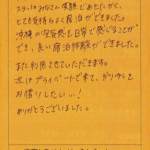 スタッフのみなさん笑顔であたたかく、
とても気持ちよく宿泊ができました。
沖縄の雰囲気も自室で感じることが
でき、良い宿泊体験ができました。
また利用させていただきますね。
次はプライベートで来て、がり
お借りしたいい！
ありがとうございました。